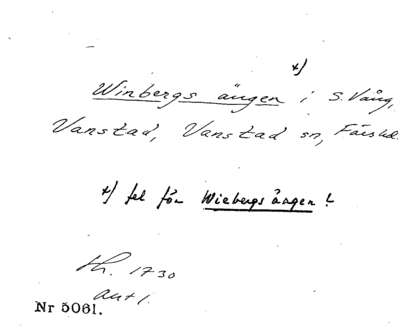 x)
Winbergs ängen i S. Vång,
Vanstad, Vanstad sn, Färs hd.
x) fel för Wiebergs ängen!
Lh. 1730
ant 1.
Nr 5061.